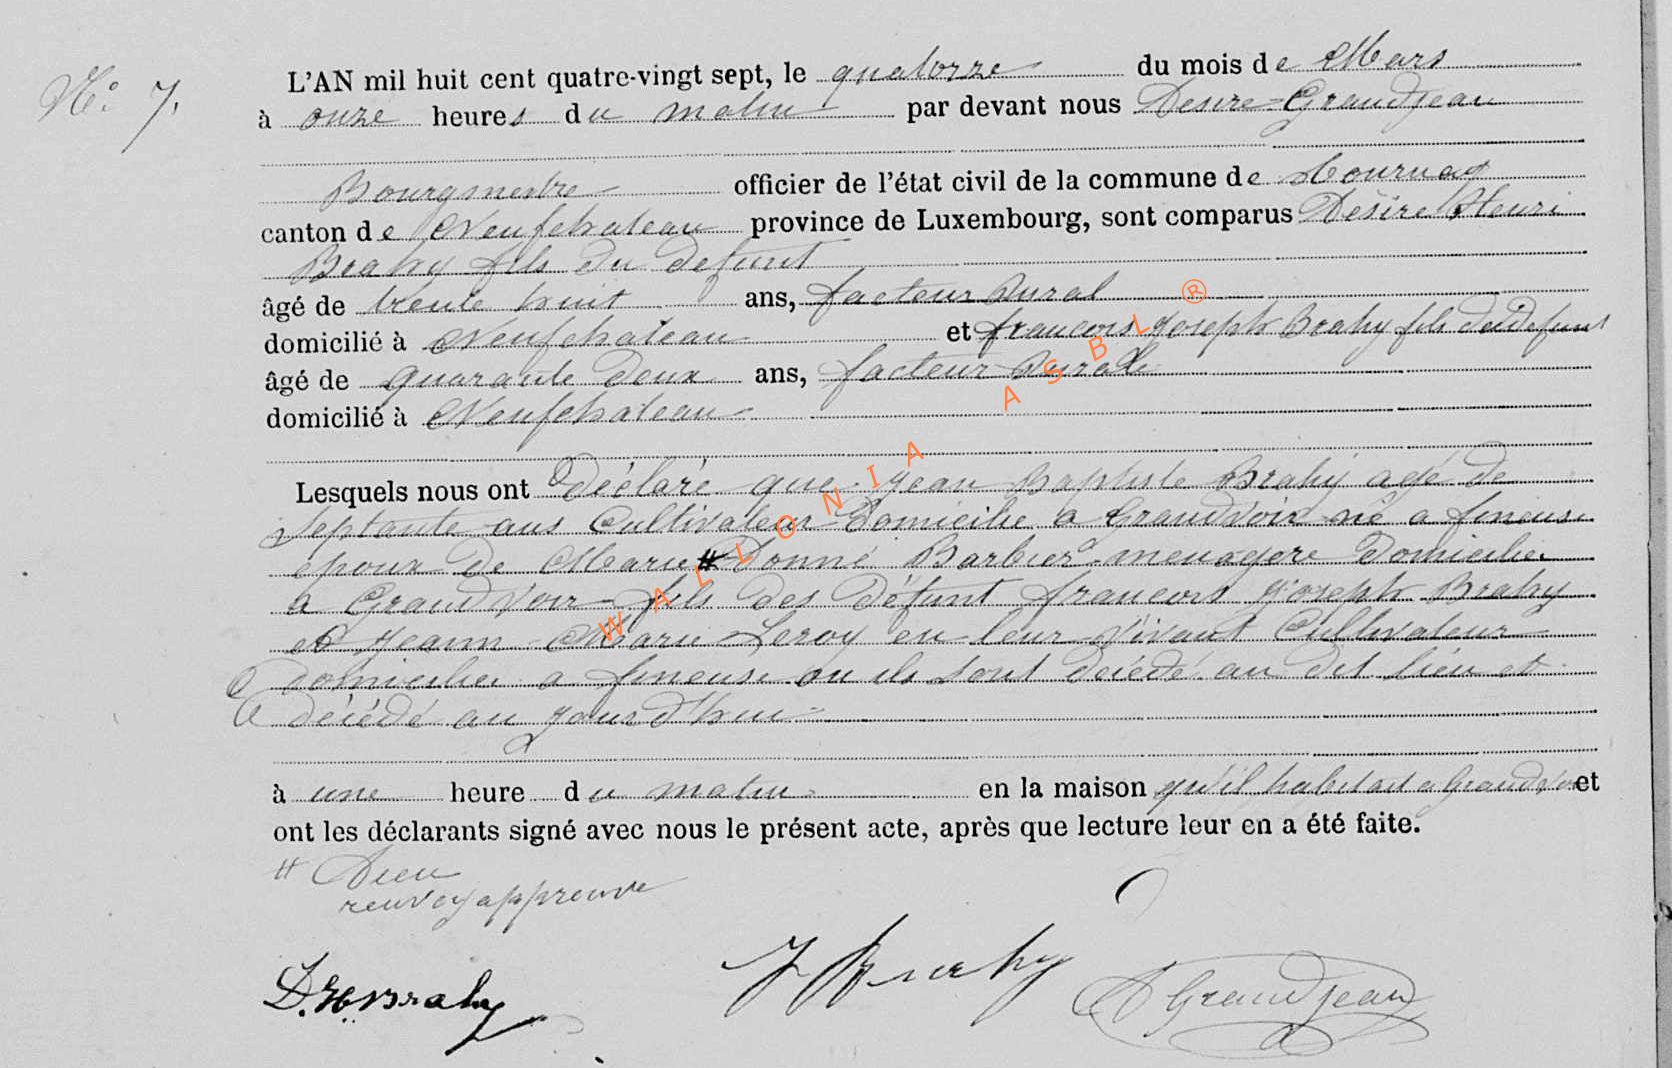 N° 7.
L'AN mil huit cent quatre-vingt sept, le quatorze du mois de Mars
à onze heures du matin par devant nous Desire Grandjean
Bourgmestre officier de l'état civil de la commune de Tournay
canton de Neufchateau province de Luxembourg, sont comparus Désire Henri
Brahy fils du defunt
âgé de trente huit ans, facteur rural
domicilié à Neufchateau et francois Joseph Brahy fils du defunt
âgé de quarante deux ans, facteur rural
domicilié à Neufchateau
Lesquels nous ont déclaré que Jean Baptiste Brahy agé de
septante ans Cultivateur Domicilie a Grandvoir né a fineuse
époux de Marie # Donné Barbier menagere Domicilie
a Grandvoir fils des défunt francois Joseph Brahy
et Jeann Marie Leroy en leur vivant Cultivateur
domicilie a fineuse ou ils sont décédé au dit lieu et
décédé au jourd'hui
à une heure du matin en la maison qu'il habitait a Grandvoir et
ont les déclarants signé avec nous le présent acte, après que lecture leur en a été faite.
# Dieu
renvoy appreuve
D. H. Brahy J Brahy D Grandjean
WALLONIA ASBL ®